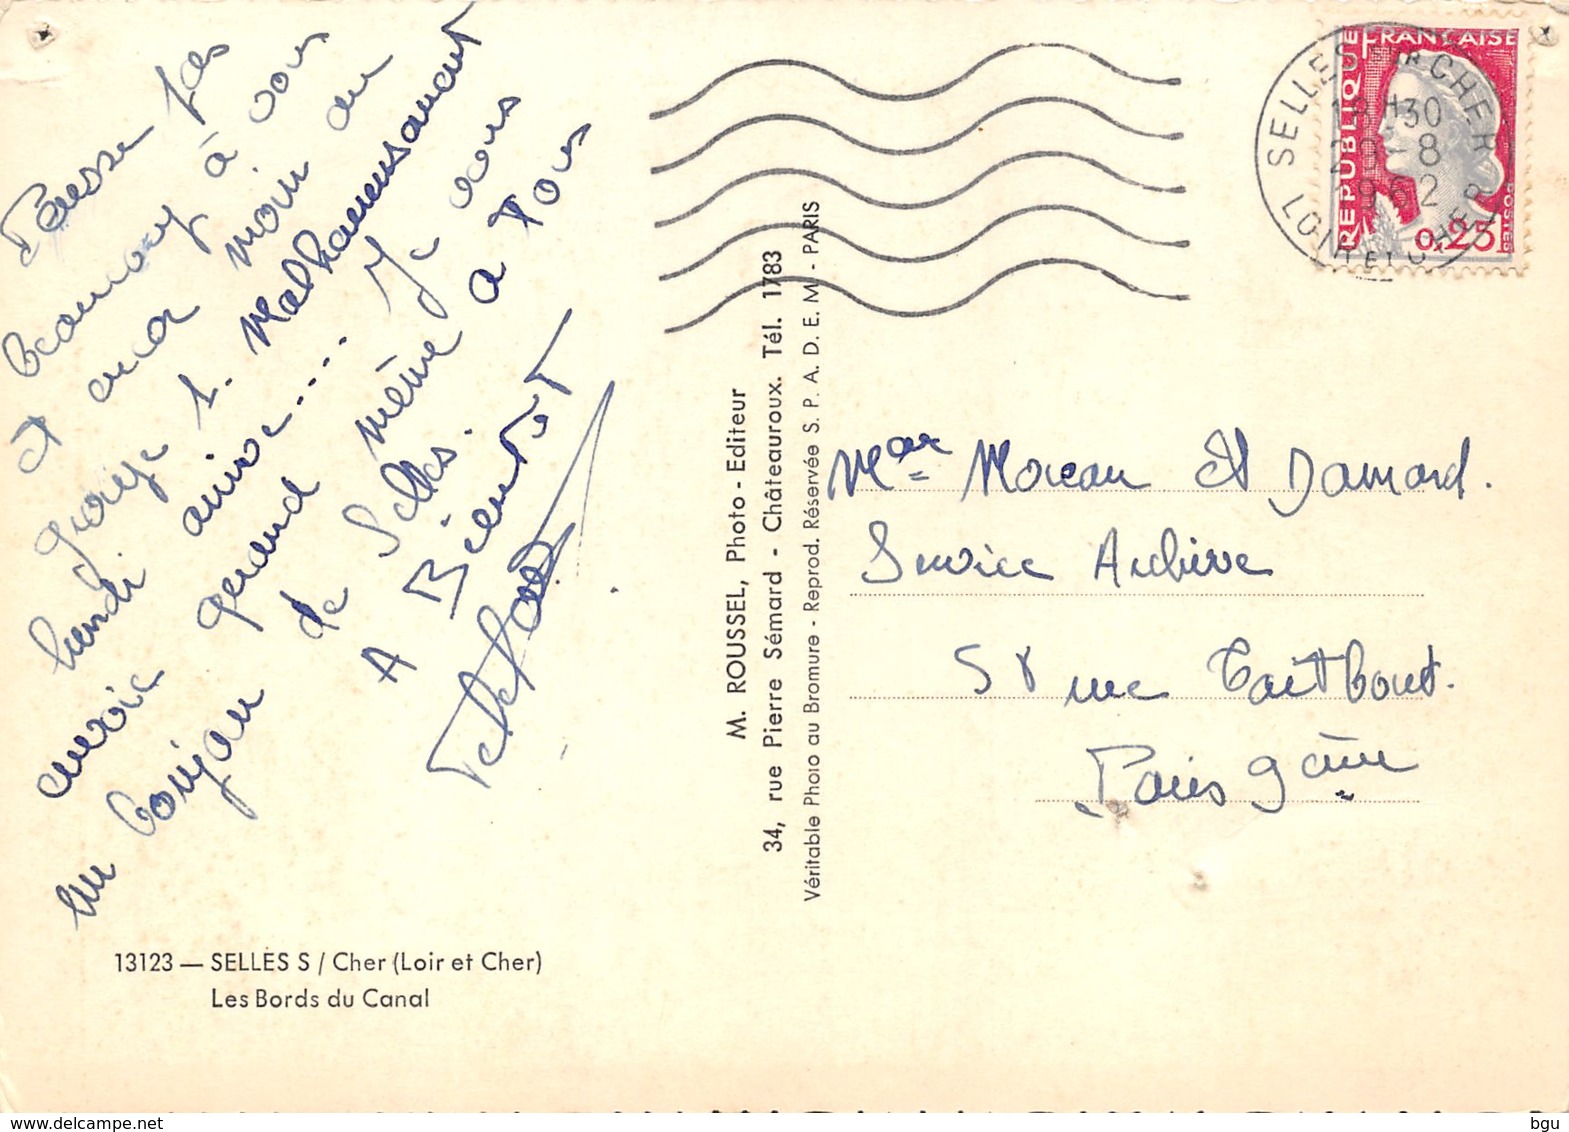 Pense pas
beaucoup à vous
et encor moin au
garage 1. Malheureusement
lundi arrive.... Je vous
envoie quand même a Tous
un bonjour de Selles.
A Bientot
M. ROUSSEL, Photo - Editeur
34, rue Pierre Sémard - Châteauroux. Tél. 1783
Véritable Photo au Bromure - Reprod. Réservée S. P. A. D. E. M. - PARIS
13123 — SELLES S / Cher (Loir et Cher)
Les Bords du Canal
REPUBLIQUE FRANÇAISE
0,25
POSTES
SELLES SUR CHER
30
29-8
1962
LOIR ET CHER
Moreau et Damard.
Service Archive
58 rue Taitbout.
Paris 9 ème
bgu